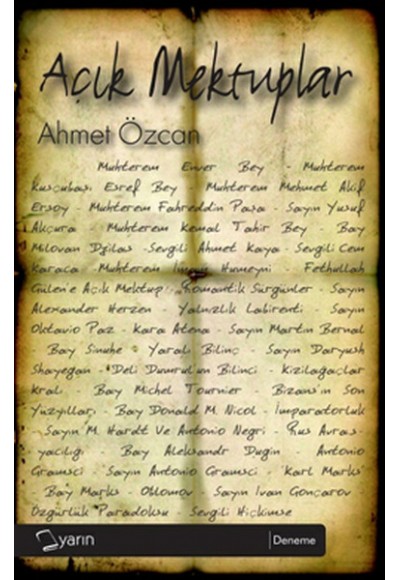 Açık Mektuplar
Ahmet Özcan
Muhterem Enver Bey - Muhterem
Kuşçubaşı Eşref Bey - Muhterem Mehmet Akif
Ersoy - Muhterem Fahreddin Paşa - Sayın Yusuf
Akçura - Muhterem Kemal Tahir Bey - Bay
Milovan Djilas -Sevgili Ahmet Kaya - Sevgili Cem
Karaca - Muhterem İmam Humeyni - Fethullah
Gülen'e Açık Mektup - Romantik Sürgünler - Sayın
Alexander Herzen - Yalnızlık Labirenti - Sayın
Oktavio Paz - Kara Atena - Sayın Martin Bernal
- Bay Sinuhe - Yaralı Bilinç - Sayın Daryush
Shayegan - Deli Dumrul'un Bilinci - Kızılağaçlar
Kralı - Bay Michel Tournier - Bizans'ın Son
Yüzyılları - Bay Donald M. Nicol - İmparatorluk
- Sayın M. Hardt Ve Antonio Negri - Rus Avras-
yacılığı - Bay Aleksandr Dugin - Antonio
Gramsci - Sayın Antonio Gramsci - Karl Marks
- Bay Marks - Oblomov - Sayın Ivan Gonçarov -
Özgürlük Paradoksu - Sevgili Hiçkimse
yarın
Deneme